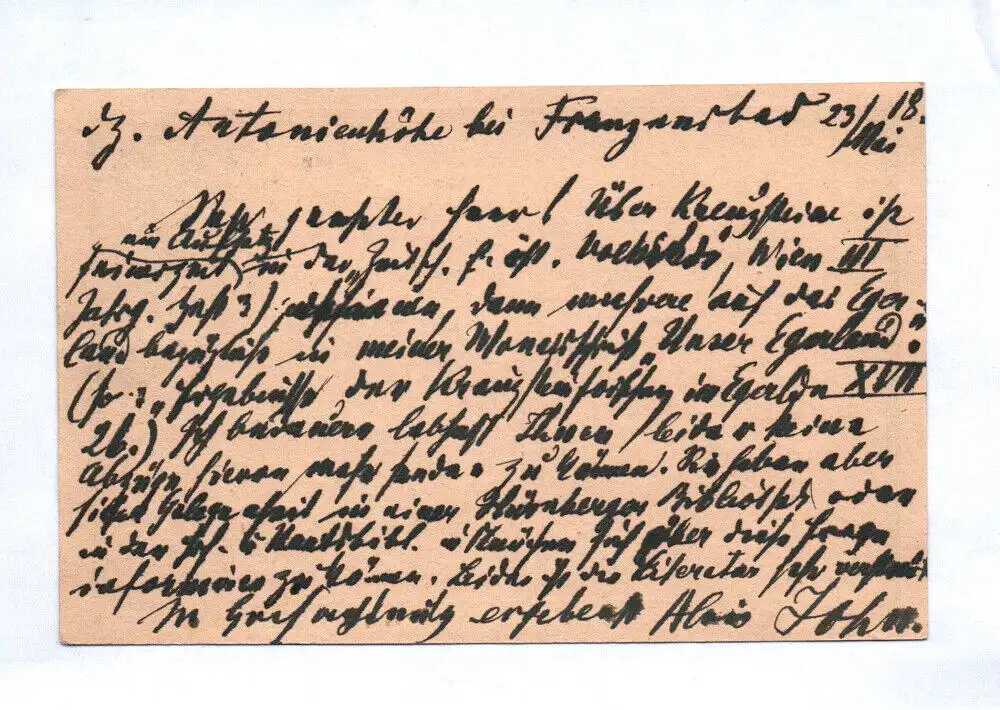 dz. Antonienhöhe bei Franzensbad 23/ 18.
Mai
Sehr geehrter Herr! Über Kreuzsteine ist
ein Aufsatz
seinerzeit in der „Zeitsch. f. öst. Volkskde", Wien III
Jahrg. Heft 3) erschienen, dann mehrere auf das Eger-
land bezüglich in meiner Monatsschrift „Unser Egerland".
„Ergebnisse der Kreuzsteinforschg im Egerlde XVII
26.) Ich bedauere lebhaft Ihnen leider keine
Abzüge hievon mehr senden zu können. Sie haben aber
sicher Gelegenheit in einer Nürnberger Bibliothek oder
in der Hof- & Staatsbibl. in München sich über diese Frage
informieren zu können. Leider ist die Literatur sehr verstreut
In Hochachtung ergebenst Alois John.